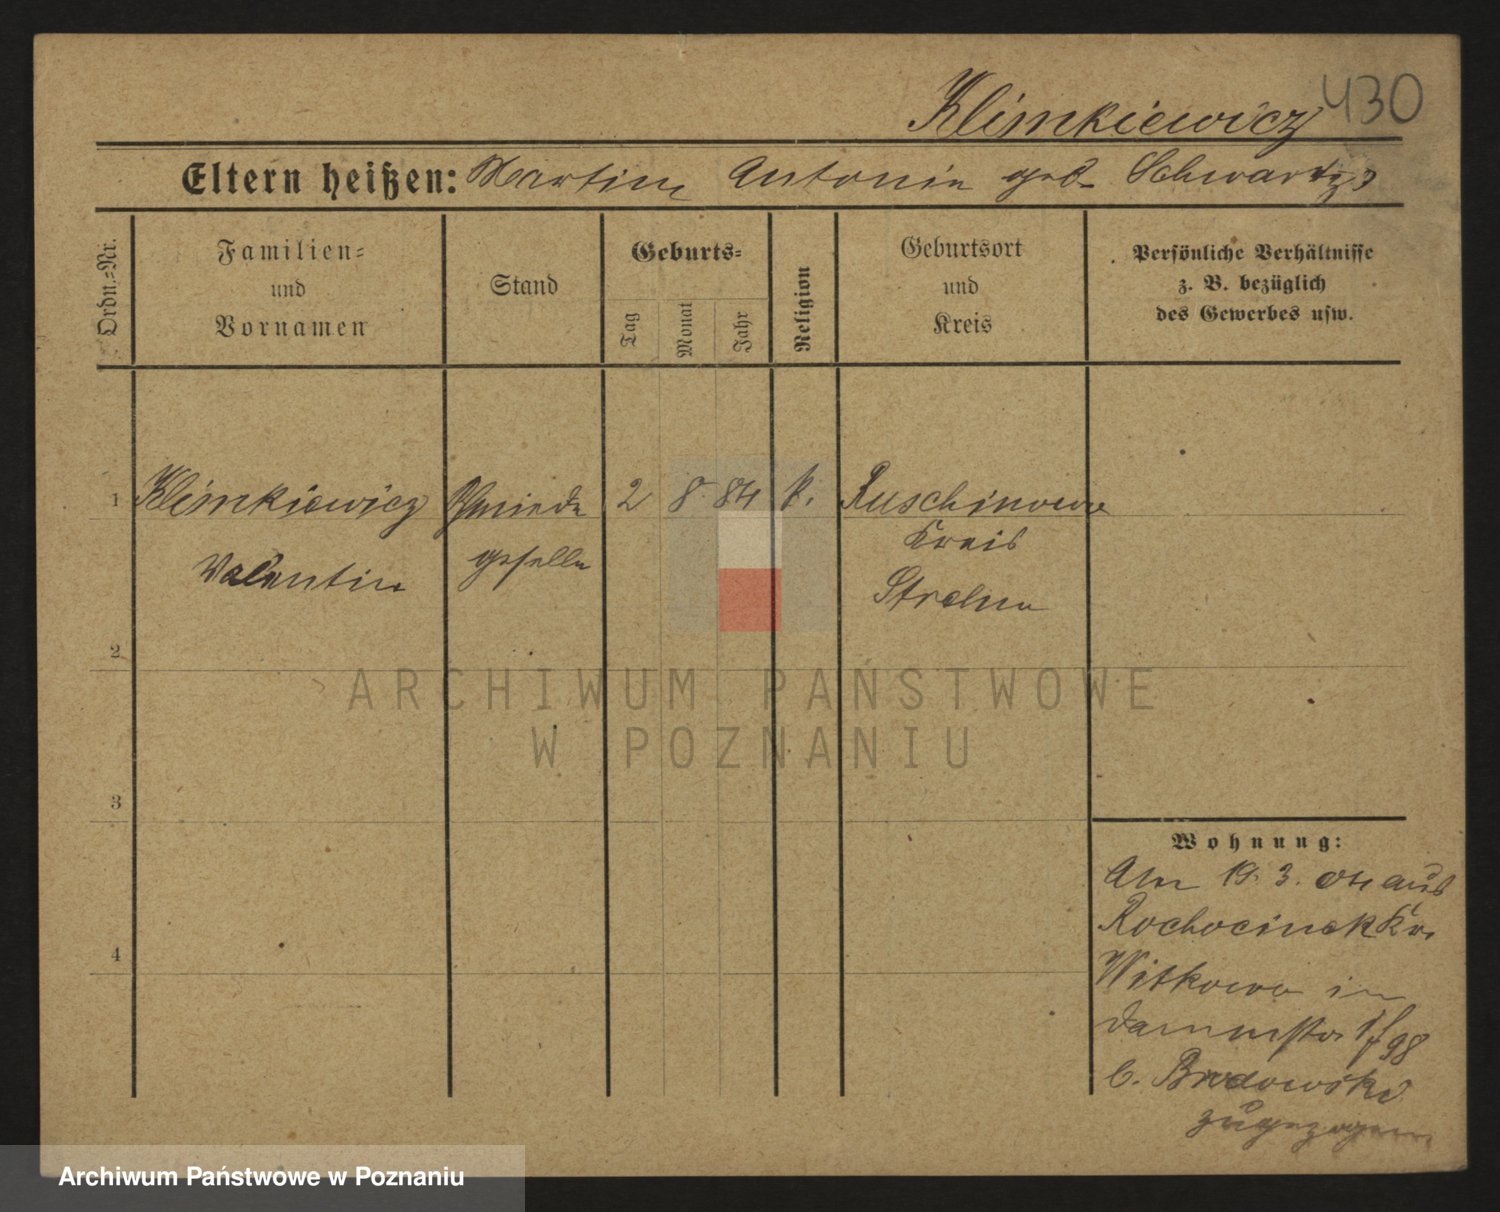 Klimkiewicz 430
Eltern heißen: Martin Antonin geb. Schwartz
Ordn.=Nr.
Familien=
und
Vornamen
Stand
Geburts=
Tag
Monat
Jahr
Religion
Geburtsort
und
Kreis
Persönliche Verhältnisse
z. B. bezüglich
des Gewerbes usw.
1 Klimkiewicz Schmiede 2 8. 84 k. Ruschinowo
Valentin geselle Kreis
Strelno
2
3
4
Wohnung:
Am 19. 3. 04 aus
Rochocinek Kr.
Witkowo in
b. Brodowski
zugezogen
ARCHIWUM PAŃSTWOWE
W POZNANIU
Archiwum Państwowe w Poznaniu